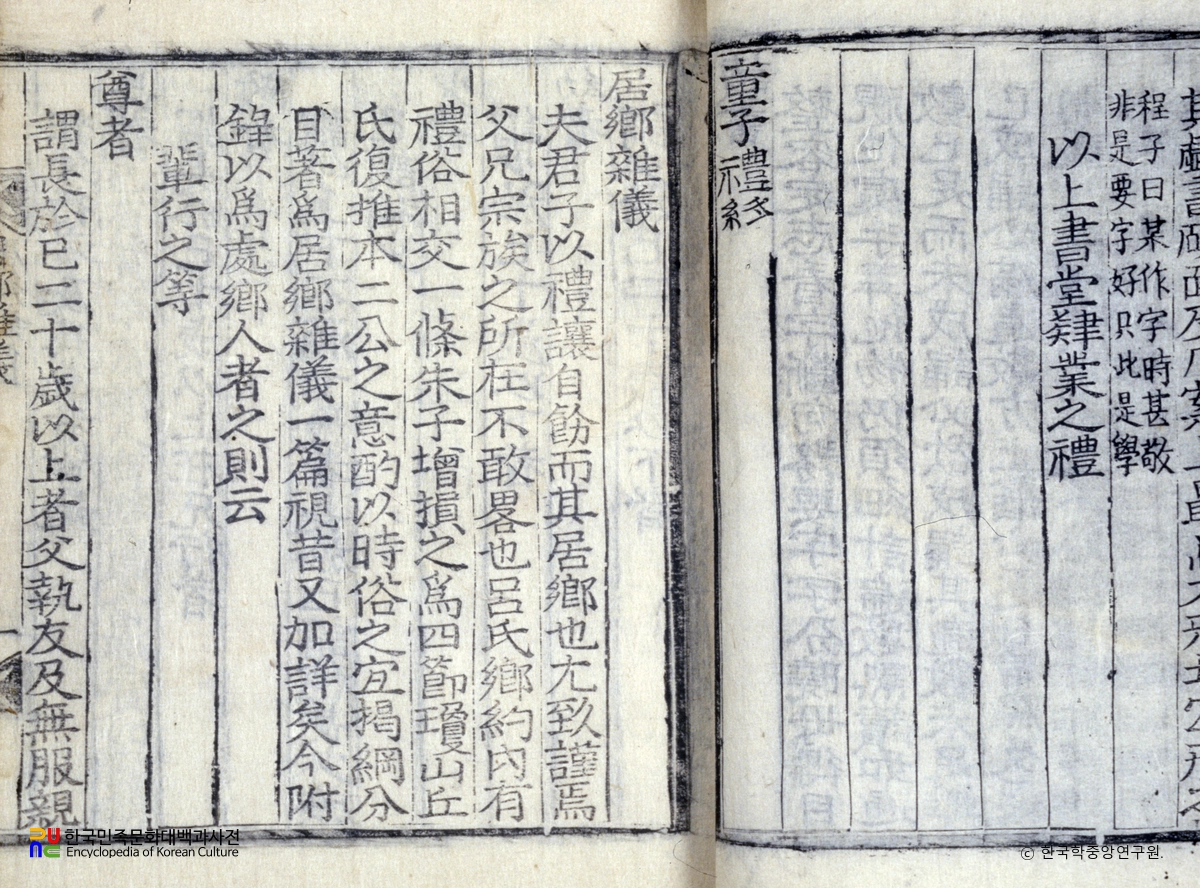 程子曰某作字時甚敬
非是要字好只此是學
以上書堂肄業之禮
童子禮終
居鄉雜儀
夫君子以禮讓自飭而其居鄉也尤致謹焉
父兄宗族之所在不敢畧也呂氏鄉約內有
禮俗相交一條朱子增損之爲四節瓊山丘
氏復推本二公之意酌以時俗之宜揭綱分
目著爲居鄉雜儀一篇視昔又加詳矣今附
錄以爲處鄉人者之則云
輩行之等
尊者
謂長於已二十歲以上者父執友及無服親
한국민족문화대백과사전
Encyclopedia of Korean Culture
© 한국학중앙연구원.